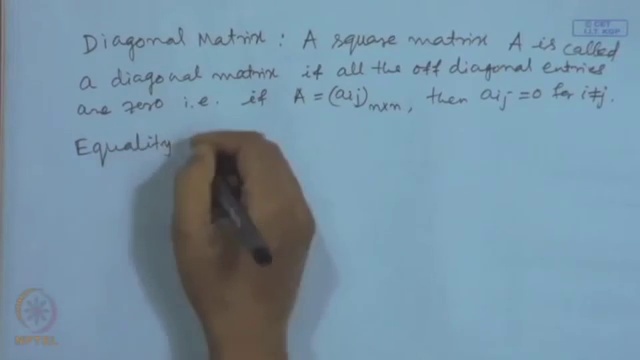 © CET
I.I.T. KGP
Diagonal Matrix : A square matrix A is called
a diagonal matrix if all the off diagonal entries
are zero i.e. if A = (aij)n×n, then aij = 0 for i≠j.
Equality
NPTEL